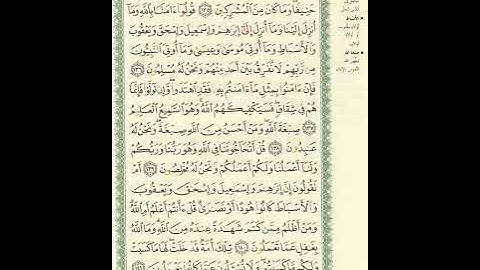 حَنِيفًا وَمَا كَانَ مِنَ الْمُشْرِكِينَ ﴿١٣٥﴾ قُولُوا ءَامَنَّا بِاللَّهِ وَمَا
أُنزِلَ إِلَيْنَا وَمَا أُنزِلَ إِلَىٰ إِبْرَاهِيمَ وَإِسْمَاعِيلَ وَإِسْحَاقَ وَيَعْقُوبَ
وَالْأَسْبَاطِ وَمَا أُوتِيَ مُوسَىٰ وَعِيسَىٰ وَمَا أُوتِيَ النَّبِيُّونَ
مِن رَّبِّهِمْ لَا نُفَرِّقُ بَيْنَ أَحَدٍ مِّنْهُمْ وَنَحْنُ لَهُ مُسْلِمُونَ ﴿١٣٦﴾
فَإِنْ ءَامَنُوا بِمِثْلِ مَا ءَامَنتُم بِهِ فَقَدِ اهْتَدَوا وَّإِن تَوَلَّوْا فَإِنَّمَا
هُمْ فِي شِقَاقٍ فَسَيَكْفِيكَهُمُ اللَّهُ وَهُوَ السَّمِيعُ الْعَلِيمُ
﴿١٣٧﴾ صِبْغَةَ اللَّهِ وَمَنْ أَحْسَنُ مِنَ اللَّهِ صِبْغَةً وَنَحْنُ لَهُ
عَابِدُونَ ﴿١٣٨﴾ قُلْ أَتُحَاجُّونَنَا فِي اللَّهِ وَهُوَ رَبُّنَا وَرَبُّكُمْ
وَلَنَا أَعْمَالُنَا وَلَكُمْ أَعْمَالُكُمْ وَنَحْنُ لَهُ مُخْلِصُونَ ﴿١٣٩﴾ أَمْ
تَقُولُونَ إِنَّ إِبْرَاهِيمَ وَإِسْمَاعِيلَ وَإِسْحَاقَ وَيَعْقُوبَ
وَالْأَسْبَاطَ كَانُوا هُودًا أَوْ نَصَارَىٰ قُلْ ءَأَنتُمْ أَعْلَمُ أَمِ اللَّهُ
وَمَنْ أَظْلَمُ مِمَّن كَتَمَ شَهَادَةً عِندَهُ مِنَ اللَّهِ وَمَا اللَّهُ
بِغَافِلٍ عَمَّا تَعْمَلُونَ ﴿١٤٠﴾ تِلْكَ أُمَّةٌ قَدْ خَلَتْ لَهَا مَا كَسَبَتْ
وَلَكُم مَّا كَسَبْتُمْ وَلَا تُسْأَلُونَ عَمَّا كَانُوا يَعْمَلُونَ ﴿١٤١﴾